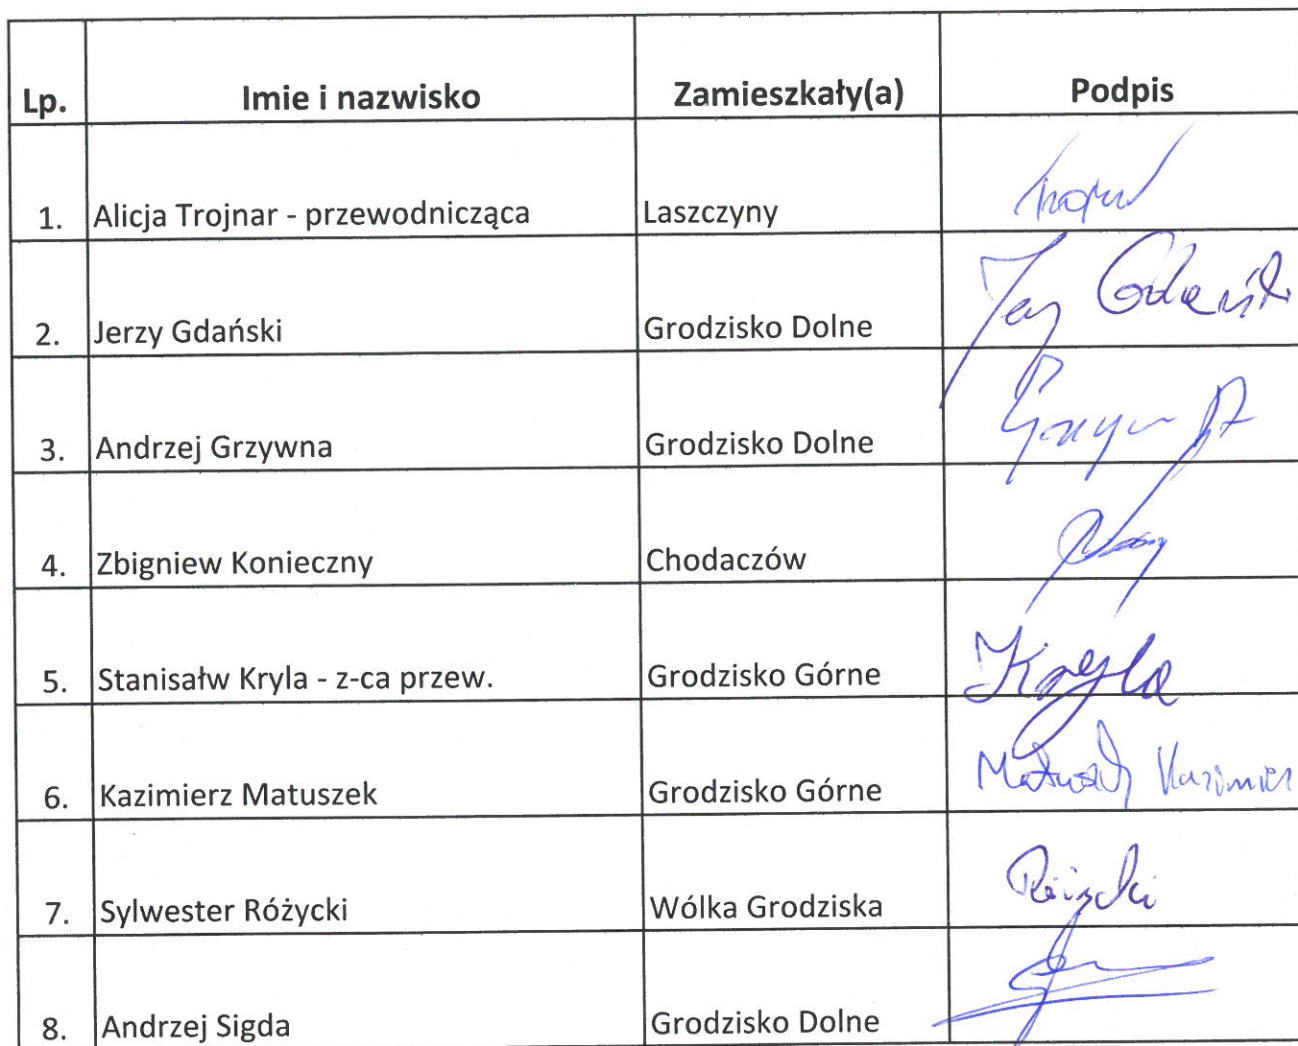 Lp. Imie i nazwisko Zamieszkały(a) Podpis
1. Alicja Trojnar - przewodnicząca Laszczyny
2. Jerzy Gdański Grodzisko Dolne Jerzy Gdański
3. Andrzej Grzywna Grodzisko Dolne
4. Zbigniew Konieczny Chodaczów
5. Stanisałw Kryla - z-ca przew. Grodzisko Górne Kryla
6. Kazimierz Matuszek Grodzisko Górne Matuszek Kazimierz
7. Sylwester Różycki Wólka Grodziska Różycki
8. Andrzej Sigda Grodzisko Dolne